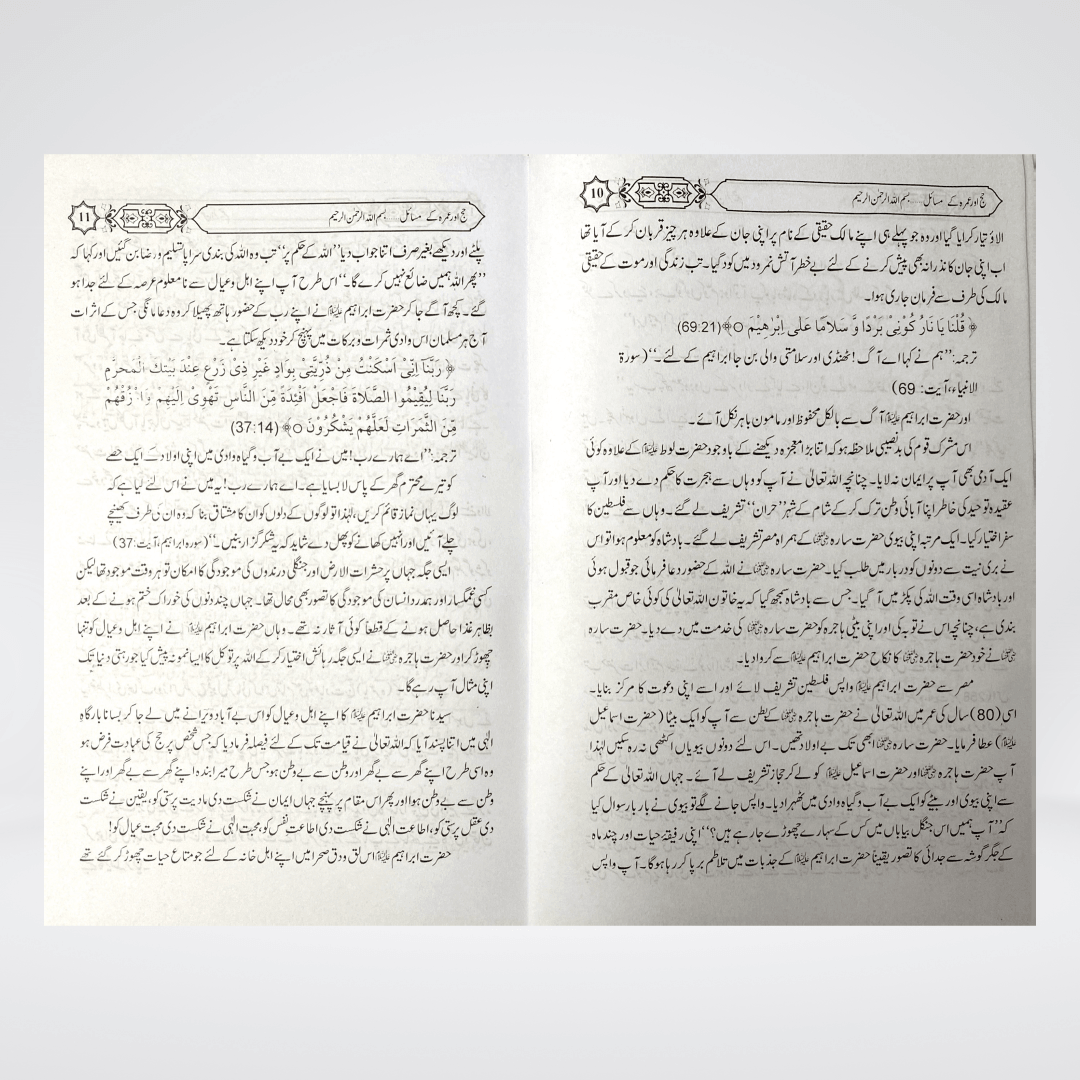 حج اور عمرہ کے مسائل..... بسم اللہ الرحمٰن الرحیم
10
الاؤ تیار کرایا گیا اور وہ جو پہلے ہی اپنے مالک حقیقی کے نام پر اپنی جان کے علاوہ ہر چیز قربان کر کے آیا تھا
اب اپنی جان کا نذرانہ بھی پیش کرنے کے لئے بے خطر آتش نمرود میں کود گیا۔ تب زندگی اور موت کے حقیقی
مالک کی طرف سے فرمان جاری ہوا۔
﴿ قُلْنَا یَا نَارُ کُوْنِیْ بَرْدًا وَّ سَلَامًا عَلٰی اِبْرٰهِیْمَ ○﴾(69:21)
ترجمہ:”ہم نے کہا اے آگ! ٹھنڈی اور سلامتی والی بن جا ابراہیم کے لئے۔“(سورۃ
الانبیاء، آیت: 69)
اور حضرت ابراہیم علیہ السلام آگ سے بالکل محفوظ اور مامون باہر نکل آئے۔
اس مشرک قوم کی بدنصیبی ملاحظہ ہو کہ اتنا بڑا معجزہ دیکھنے کے باوجود حضرت لوط علیہ السلام کے علاوہ کوئی
ایک آدمی بھی آپ پر ایمان نہ لایا۔ چنانچہ اللہ تعالیٰ نے آپ کو وہاں سے ہجرت کا حکم دے دیا اور آپ
عقیدہ توحید کی خاطر اپنا آبائی وطن ترک کر کے شام کے شہر ”حران“ تشریف لے گئے۔ وہاں سے فلسطین کا
سفر اختیار کیا۔ ایک مرتبہ اپنی بیوی حضرت سارہ علیہا السلام کے ہمراہ مصر تشریف لے گئے۔ بادشاہ کو معلوم ہوا تو اس
نے بری نیت سے دونوں کو دربار میں طلب کیا۔ حضرت سارہ علیہا السلام نے اللہ کے حضور دعا فرمائی جو قبول ہوئی
اور بادشاہ اسی وقت اللہ کی پکڑ میں آ گیا۔ جس سے بادشاہ سمجھ گیا کہ یہ خاتون اللہ تعالیٰ کی کوئی خاص مقرب
بندی ہے، چنانچہ اس نے توبہ کی اور اپنی بیٹی ہاجرہ کو حضرت سارہ علیہا السلام کی خدمت میں دے دیا۔ حضرت سارہ
علیہا السلام نے خود حضرت ہاجرہ علیہا السلام کا نکاح حضرت ابراہیم علیہ السلام سے کروا دیا۔
مصر سے حضرت ابراہیم علیہ السلام واپس فلسطین تشریف لائے اور اسے اپنی دعوت کا مرکز بنایا۔
اسی (80) سال کی عمر میں اللہ تعالیٰ نے حضرت ہاجرہ علیہا السلام کے بطن سے آپ کو ایک بیٹا ( حضرت اسماعیل
علیہ السلام) عطا فرمایا۔ حضرت سارہ علیہا السلام ابھی تک بے اولاد تھیں۔ اس لئے دونوں بیویاں اکٹھی نہ رہ سکیں لہٰذا
آپ حضرت ہاجرہ علیہا السلام اور حضرت اسماعیل علیہ السلام کو لے کر حجاز تشریف لے آئے۔ جہاں اللہ تعالیٰ کے حکم
سے اپنی بیوی اور بیٹے کو ایک بے آب و گیاہ وادی میں ٹھہرا دیا۔ واپس جانے لگے تو بیوی نے بار بار سوال کیا
کہ ”آپ ہمیں اس جنگل بیاباں میں کس کے سہارے چھوڑے جا رہے ہیں؟“ اپنی رفیقۂ حیات اور چند ماہ
کے جگر گوشہ سے جدائی کا تصور یقیناً حضرت ابراہیم علیہ السلام کے جذبات میں تلاطم برپا کر رہا ہوگا۔ آپ واپس
حج اور عمرہ کے مسائل..... بسم اللہ الرحمٰن الرحیم
11
پلٹے اور دیکھے بغیر صرف اتنا جواب دیا ”اللہ کے حکم پر“ تب وہ اللہ کی بندی سراپا تسلیم و رضا بن گئیں اور کہا کہ
”پھر اللہ ہمیں ضائع نہیں کرے گا۔“ اس طرح آپ اپنے اہل و عیال سے نا معلوم عرصہ کے لئے جدا ہو
گئے۔ کچھ آگے جا کر حضرت ابراہیم علیہ السلام نے اپنے رب کے حضور ہاتھ پھیلا کر وہ دعا مانگی جس کے اثرات
آج ہر مسلمان اس وادی ثمرات و برکات میں پہنچ کر خود دیکھ سکتا ہے۔
﴿ رَبَّنَا اِنِّیْ اَسْکَنْتُ مِنْ ذُرِّیَّتِیْ بِوَادٍ غَیْرِ ذِیْ زَرْعٍ عِنْدَ بَیْتِكَ الْمُحَرَّمِ
رَبَّنَا لِیُقِیْمُوا الصَّلَاةَ فَاجْعَلْ اَفْئِدَةً مِّنَ النَّاسِ تَهْوِیْ اِلَیْهِمْ وَارْزُقْهُمْ
مِّنَ الثَّمَرَاتِ لَعَلَّهُمْ یَشْکُرُوْنَ ○﴾(37:14)
ترجمہ:”اے ہمارے رب! میں نے ایک بے آب و گیاہ وادی میں اپنی اولاد کے ایک حصے
کو تیرے محترم گھر کے پاس لا بسایا ہے۔ اے ہمارے رب! یہ میں نے اس لئے کیا ہے کہ
لوگ یہاں نماز قائم کریں، لہٰذا تو لوگوں کے دلوں کو ان کا مشتاق بنا کہ وہ ان کی طرف کھنچے
چلے آئیں اور انہیں کھانے کو پھل دے شاید کہ یہ شکر گزار بنیں۔“(سورہ ابراہیم، آیت: 37)
ایسی جگہ جہاں پر حشرات الارض اور جنگلی درندوں کی موجودگی کا امکان تو ہر وقت موجود تھا لیکن
کسی غمگسار اور ہمدرد انسان کی موجودگی کا تصور بھی محال تھا۔ جہاں چند دنوں کی خوراک ختم ہونے کے بعد
بظاہر غذا حاصل ہونے کے قطعاً کوئی آثار نہ تھے۔ وہاں حضرت ابراہیم علیہ السلام نے اپنے اہل و عیال کو تنہا
چھوڑ کر اور حضرت ہاجرہ علیہا السلام نے ایسی جگہ رہائش اختیار کر کے اللہ پر توکل کا ایسا نمونہ پیش کیا جو رہتی دنیا تک
اپنی مثال آپ رہے گا۔
سیدنا حضرت ابراہیم علیہ السلام کا اپنے اہل و عیال کو اس بے آباد ویرانے میں لے جا کر بسانا بارگاہ
الٰہی میں اتنا پسند آیا کہ اللہ تعالیٰ نے قیامت تک کے لئے فیصلہ فرما دیا کہ جس شخص پر حج کی عبادت فرض ہو
وہ اسی طرح اپنے گھر سے بے گھر اور وطن سے بے وطن ہو جس طرح میرا بندہ اپنے گھر سے بے گھر اور اپنے
وطن سے بے وطن ہوا اور پھر اس مقام پر پہنچے جہاں ایمان نے شکست دی مادیت پرستی کو، یقین نے شکست
دی عقل پرستی کو، اطاعت الٰہی نے شکست دی اطاعت نفس کو، محبت الٰہی نے شکست دی محبت عیال کو!
حضرت ابراہیم علیہ السلام اس لق و دق صحرا میں اپنے اہل خانہ کے لئے جو متاع حیات چھوڑ کر گئے تھے